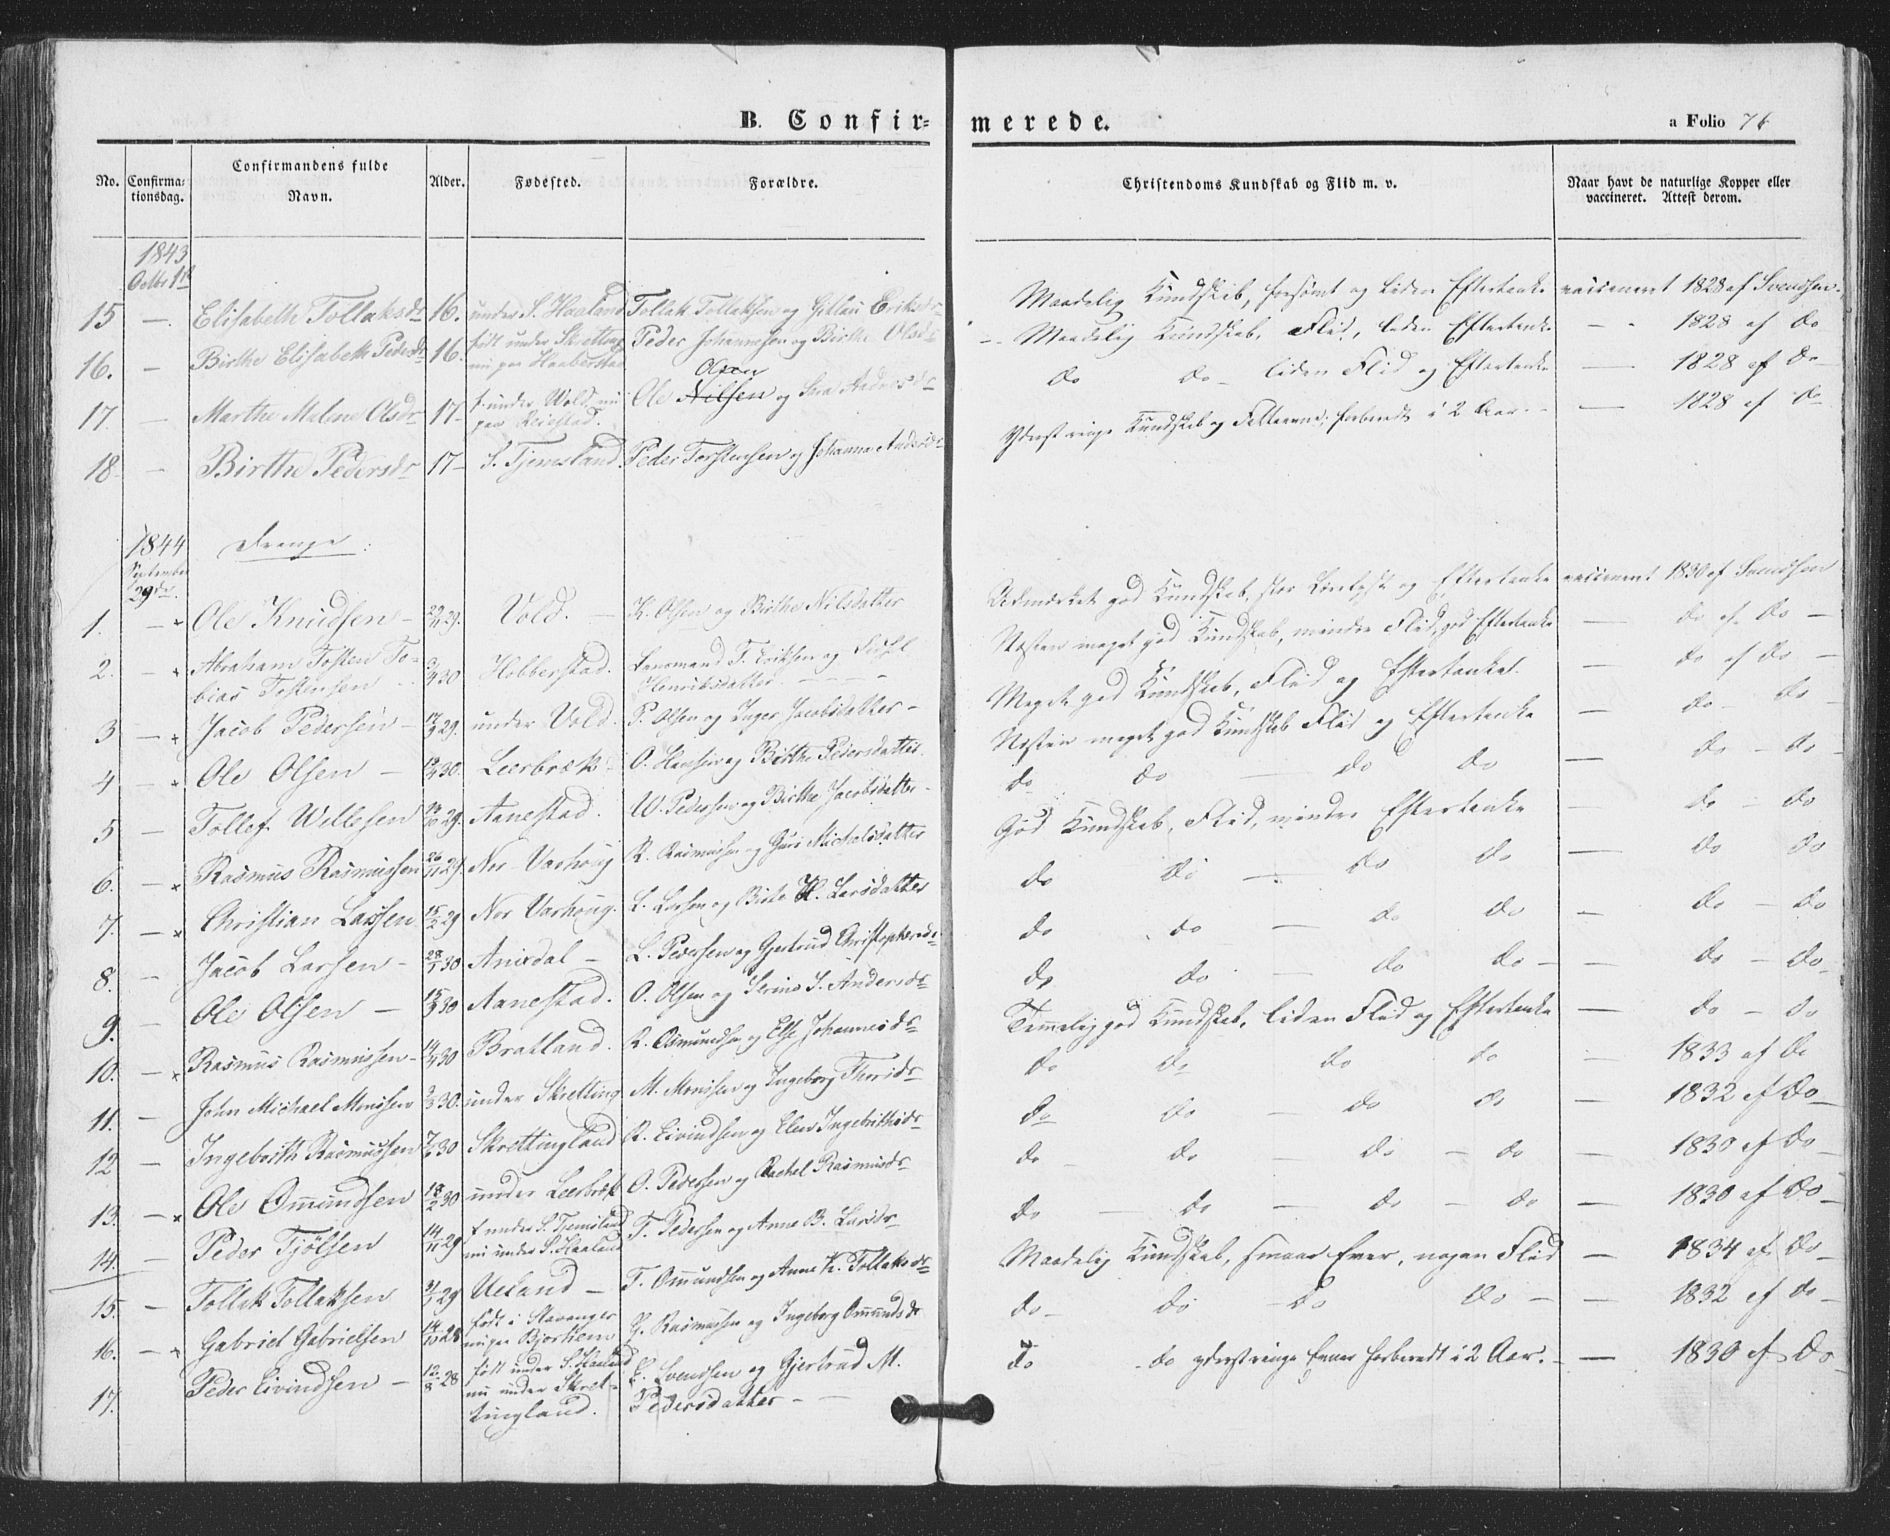 B. Confir-
merede.
a Folio 76
No. Confirmationsdag. Confirmandens fulde Navn. Alder. Fødested. Forældre. Christendoms Kundskab og Flid m. v. Naar havt de naturlige Kopper eller vaccineret. Attest derom.
1843
15 — Elisabeth Tollaksdr 16. under S. Haaland Tollak Tollaksen og Eriksdr Maadelig Kundskab, forsømt og liden Eftertanke vaccineret 1828 af Svendsen.
16. — Birthe Elisabeth Pedersdr 16. født under Skretting nu paa Haaberstad Peder Johannesen og Birthe Olsdr Maadelig Kundskab, Flid, liden Eftertanke — 1828 af do
17 — Marthe Malene Olsdr 17 f. under Wold nu paa Reiestad. Ole Nilsen Olsen og Andersdr do do liden Flid og Eftertanke — 1828 af do
18 — Birthe Pedersdr 17 — S. Tjemsland Peder Torstensen og Johanna Andersdr Yderst ringe Kundskab og forberedt i 2 Aar. — 1828 af do
1844 Drenge:
September
29de
1. — Ole Knudsen — 22/11 29. Vold. — K. Olsen og Birthe Nilsdatter Udmærket god Kundskab, stor Lærelyst og Eftertanke vaccineret 1830 af Svendsen
2. — Abraham Tosten Tobias Tostensen 3/4 30 Hobberstad. Lensmand T. Eriksen og Henriksdatter Næsten meget god Kundskab, mindre Flid, god Eftertanke — do af do —
3 — Jacob Pedersen — 29. under Vold. P. Olsen og Inger Jacobsdatter — Meget god Kundskab, Flid og Eftertanke. — do af do —
4 — Ole Olsen — 30. Leerbræk O. Hansen og Birthe Pedersdatter. Næsten meget god Kundskab Flid og Eftertanke — do — do
5 — Tollef Willesen 29. Aanestad. W. Pedersen og Birthe Jacobsdatter — do do — do do — do — do —
6. — Rasmus Rasmussen 26/11 29. Nor Varhoug R. Rasmussen og Guri Michelsdatter God Kundskab, Flid, mindre Eftertanke — do — do
7. — Christian Larssen 15/2 29 Nor Varhoug. L. Larsen og Birte K. Larsdatter do do — do do — do do
8. — Jacob Larsen — 28/1 30 Anisdal — L. Pedersen og Gjertrud Christophersdr do do — do do — do — do
9. — Ole Olsen — 15/3 30 Aanestad. O. Olsen og Serine S. Andersdr do do — do do — do — do
10. — Rasmus Rasmussen — 14/4 30 Bratland. R. Osmundsen og Else Johannesdr Temmelig god Kundskab, liden Flid og Eftertanke — do — do
11. — John Michael Monsen 30. under Skretting M. Monsen og Ingeborg Thordr do do do do — 1833 af do
12 — Ingebrith Rasmussen 30 Skrettingland R. Eivindsen og Elen Ingebrithsdr do do — do do — 1832 af do
13. — Ole Omundsen 18/2 30 under Leerbræk O. Pedersen og Rachel Rasmusdr do — do — do — do — 1830 af do
14. — Peder Tjølsen 14/11 29 f. under S. Tjemsland nu under S. Haaland T. Pedersen og Anne B. Larsdr do — do — do — do — 1830 af do
15. — Tollak Tollaksen 29 Ueland — T. Omundsen og Anne K. Tollaksdr Maadelig Kundskab, smaae Evner, nogen Flid — 1834 af do
16. — Gabriel Gabrielsen 28 født i Stavanger nu paa Bjorkem G. Rasmussen og Ingeborg Omundsdr do — do — do do — — 1832 af do —
17. Peder Eivindsen — 12/8 28 født under S. Haaland nu under Skrettingland. E. Svendsen og Gjertrud M. Pedersdatter — — do do yderst ringe Evner forberedt i 2 Aar. — 1830 af do